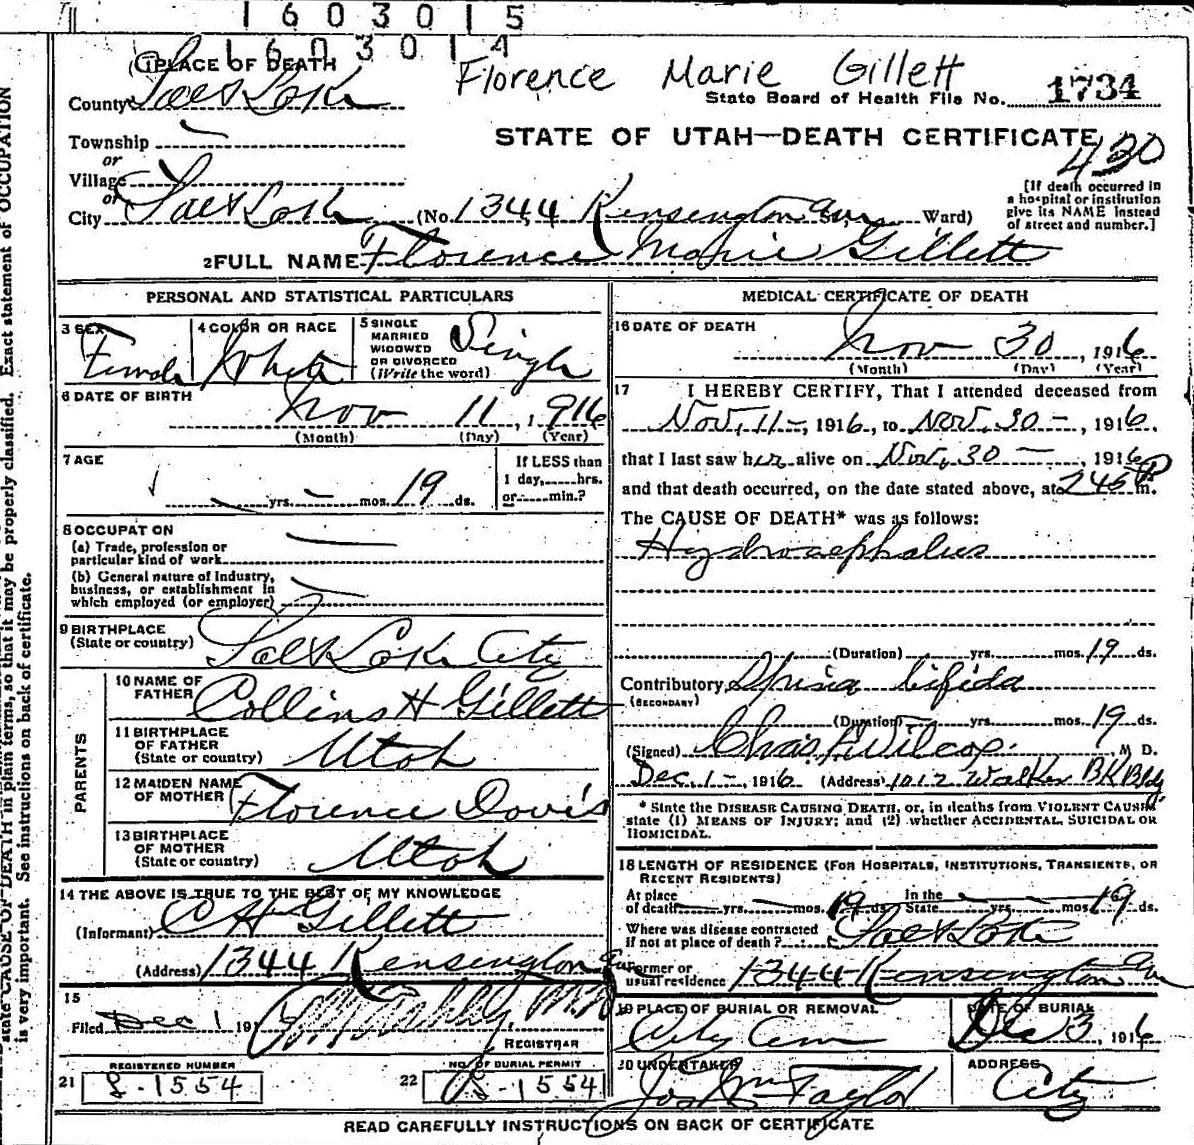 1603015
1603014
1 PLACE OF DEATH
Florence Marie Gillett
County Salt Lake
State Board of Health File No. 1734
STATE OF UTAH—DEATH CERTIFICATE
Township
or
Village
or
430
[If death occurred in
a hospital or institution
give its NAME instead
of street and number.]
City Salt Lake (No. 1344 Kensington Ave St., Ward)
2 FULL NAME Florence Marie Gillett
PERSONAL AND STATISTICAL PARTICULARS
3 SEX
Female
4 COLOR OR RACE
White
5 SINGLE
MARRIED
WIDOWED
OR DIVORCED
(Write the word)
Single
6 DATE OF BIRTH
Nov 11, 1916
(Month) (Day) (Year)
7 AGE
yrs. mos. 19 ds.
If LESS than
1 day, hrs.
or min.?
8 OCCUPATION
(a) Trade, profession or
particular kind of work
(b) General nature of Industry,
business, or establishment in
which employed (or employer)
9 BIRTHPLACE
(State or country) Salt Lake City
PARENTS
10 NAME OF
FATHER Collins H Gillett
11 BIRTHPLACE
OF FATHER
(State or country) Utah
12 MAIDEN NAME
OF MOTHER Florence Davis
13 BIRTHPLACE
OF MOTHER
(State or country) Utah
14 THE ABOVE IS TRUE TO THE BEST OF MY KNOWLEDGE
(Informant) C H Gillett
(Address) 1344 Kensington Ave
15
Filed Dec 1 191 M.D.
REGISTRAR
REGISTERED NUMBER
21 S-1554
NO. OF BURIAL PERMIT
22 S-1554
MEDICAL CERTIFICATE OF DEATH
16 DATE OF DEATH
Nov 30, 1916
(Month) (Day) (Year)
17 I HEREBY CERTIFY, That I attended deceased from
Nov. 11-, 1916, to Nov. 30-, 1916,
that I last saw her alive on Nov. 30-, 1916
and that death occurred, on the date stated above, at 245 P m.
The CAUSE OF DEATH* was as follows:
Hydrocephalus
(Duration) yrs. mos. 19 ds.
Contributory Spina bifida
(SECONDARY)
(Duration) yrs. mos. 19 ds.
(Signed) Chas. Wilcox. M D.
Dec. 1-1916 (Address) 1012 Walker BK Bldg
* State the DISEASE CAUSING DEATH, or, in deaths from VIOLENT CAUSES
state (1) MEANS OF INJURY; and (2) whether ACCIDENTAL, SUICIDAL OR
HOMICIDAL.
18 LENGTH OF RESIDENCE (FOR HOSPITALS, INSTITUTIONS, TRANSIENTS, OR
RECENT RESIDENTS)
At place
of death yrs. mos. 19 ds.
In the
State yrs. mos. 19 ds.
Where was disease contracted
if not at place of death? Salt Lake
Former or
usual residence 1344 Kensington Ave
19 PLACE OF BURIAL OR REMOVAL
City Cem
DATE OF BURIAL
Dec 3, 1916
20 UNDERTAKER
Jos Wm Taylor
ADDRESS
City
READ CAREFULLY INSTRUCTIONS ON BACK OF CERTIFICATE
state CAUSE OF DEATH in plain terms, so that it may be properly classified. Exact statement of OCCUPATION
is very important. See instructions on back of certificate.